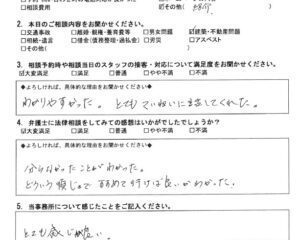 □相談費用 ☑その他(
2. 本日のご相談内容をお聞かせください。
□交通事故 □離婚・親権・養育費等 □男女問題 ☑建築・不動産問題
□相続・遺言 □借金(債務整理・過払金) □労災 □アスベスト
□その他( )
3. 相談予約時や相談当日のスタッフの接客・対応について満足度をお聞かせください。
☑大変満足 □満足 □普通 □やや不満 □不満
◆よろしければ、具体的な理由をお聞かせください◆
わかりやすかった。とてもていねいに対応してくれた。
4. 弁護士に法律相談をしてみての感想はいかがでしたでしょうか?
☑大変満足 □満足 □普通 □やや不満 □不満
◆よろしければ、具体的な理由をお聞かせください◆
分らなかったことがわかった。
どういう順じょで すすめて行けば良いかわかった。
5. 当事務所について感じたことをご記入ください。
とても感じが良い。